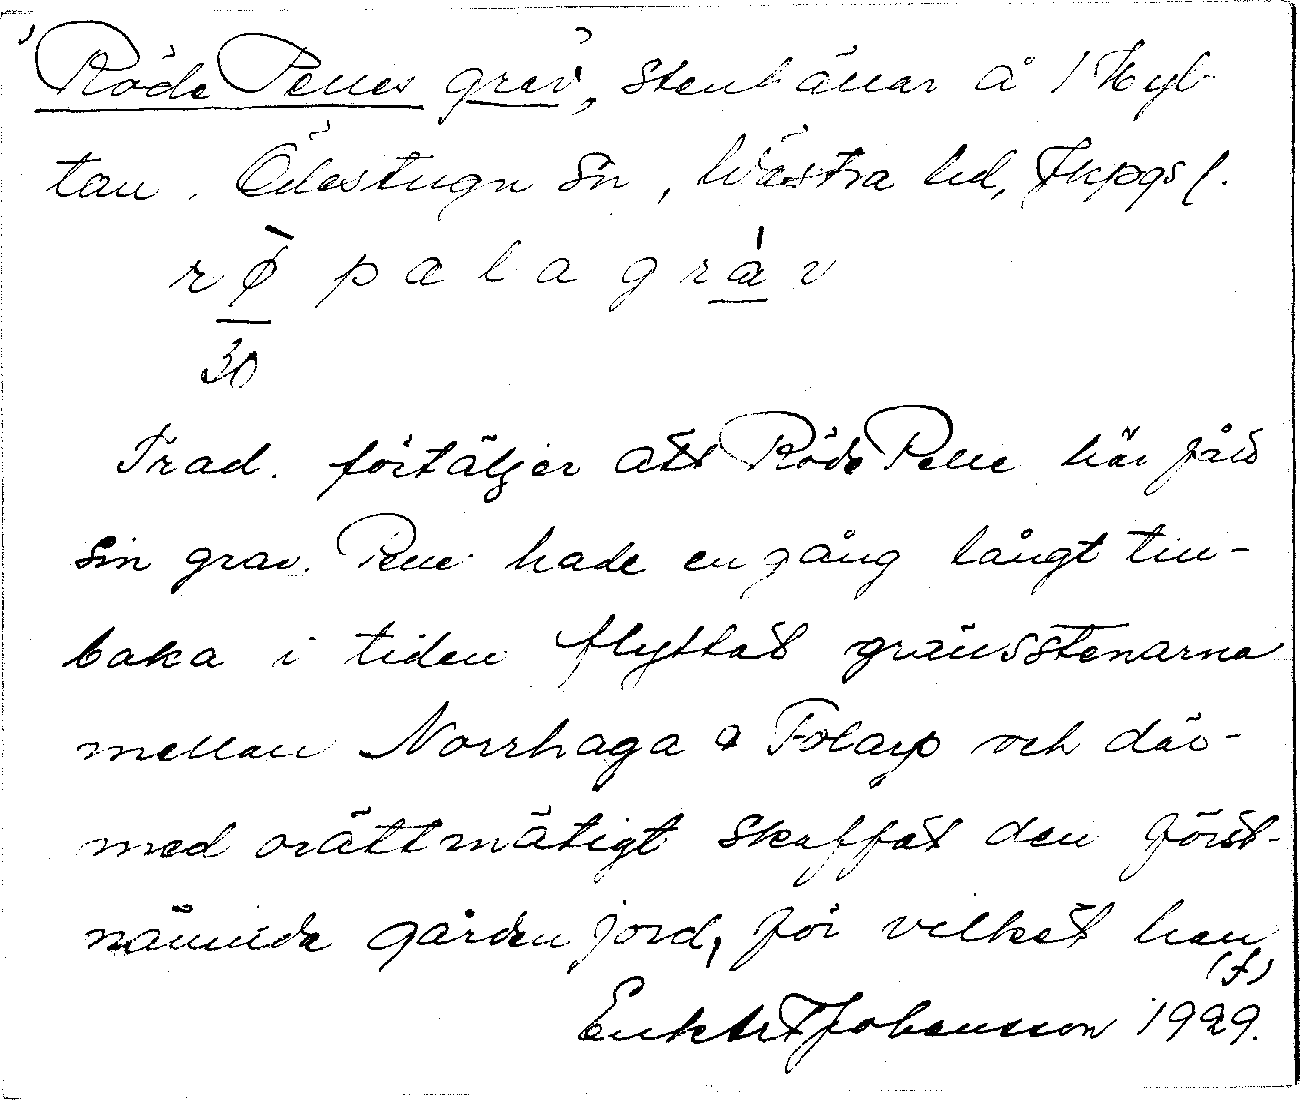 'Röde Pelles grav', stenhällar å 1 Hyl-
tan. Ödestugu sn, Västra hd, Jkpgs l.
rø̀ palagráv
30
Trad. förtäljer att Röde Pelle här fått
sin grav. Pelle hade en gång långt till-
baka i tiden flyttat gränsstenarna
mellan Norrhaga & Folarp och där-
med orättmätigt skaffat den först-
nämnda gården jord, för vilket han
(f)
Johansson 1929.